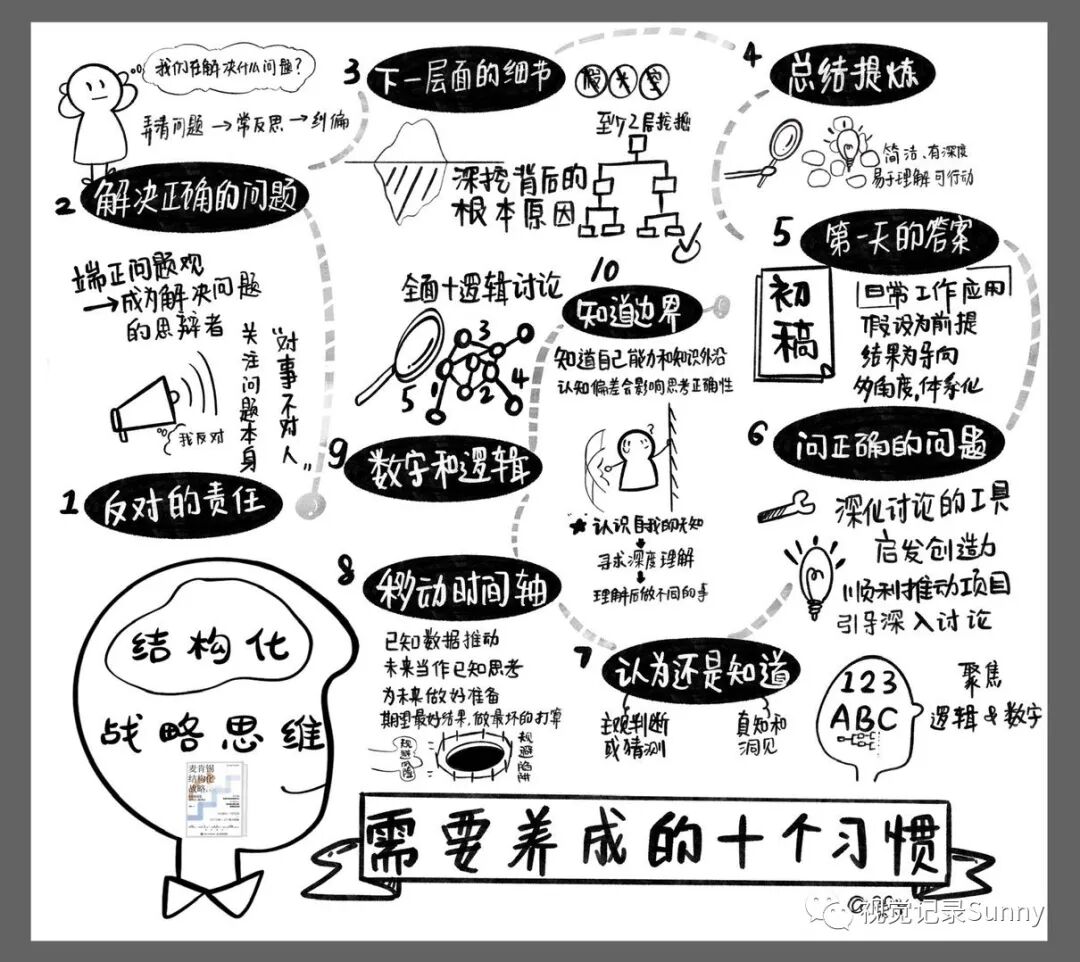 结构化
战略思维
麦肯锡
结构化
战略
需要养成的十个习惯
1 反对的责任
我反对
"对事不对人"
关注问题本身
2 解决正确的问题
端正问题观
→成为解决问题
的思辩者
我们在解决什么问题?
弄清问题→常反思→纠偏
3 下一层面的细节
假大空
至少2层挖掘
深挖背后的
根本原因
4 总结提炼
简洁、有深度
易于理解可行动
5 第一天的答案
初稿
日常工作应用
假设为前提
结果为导向
多角度,体系化
6 问正确的问题
深化讨论的工具
启发创造力
顺利推动项目
引导深入讨论
7 认为还是知道
主观判断
或猜测
真知和
洞见
123
ABC
聚焦
逻辑&数字
8 移动时间轴
已知数据推动
未来当作已知思考
为未来做好准备
期望最好结果,做最坏的打算
规避风险
规避陷阱
9 数字和逻辑
全面+逻辑讨论
1
2
3
4
5
10
知道边界
知道自己能力和知识外沿
认知偏差会影响思考正确性
★认识自我的无知
寻求深度理解
理解后做不同的事
视觉记录Sunny